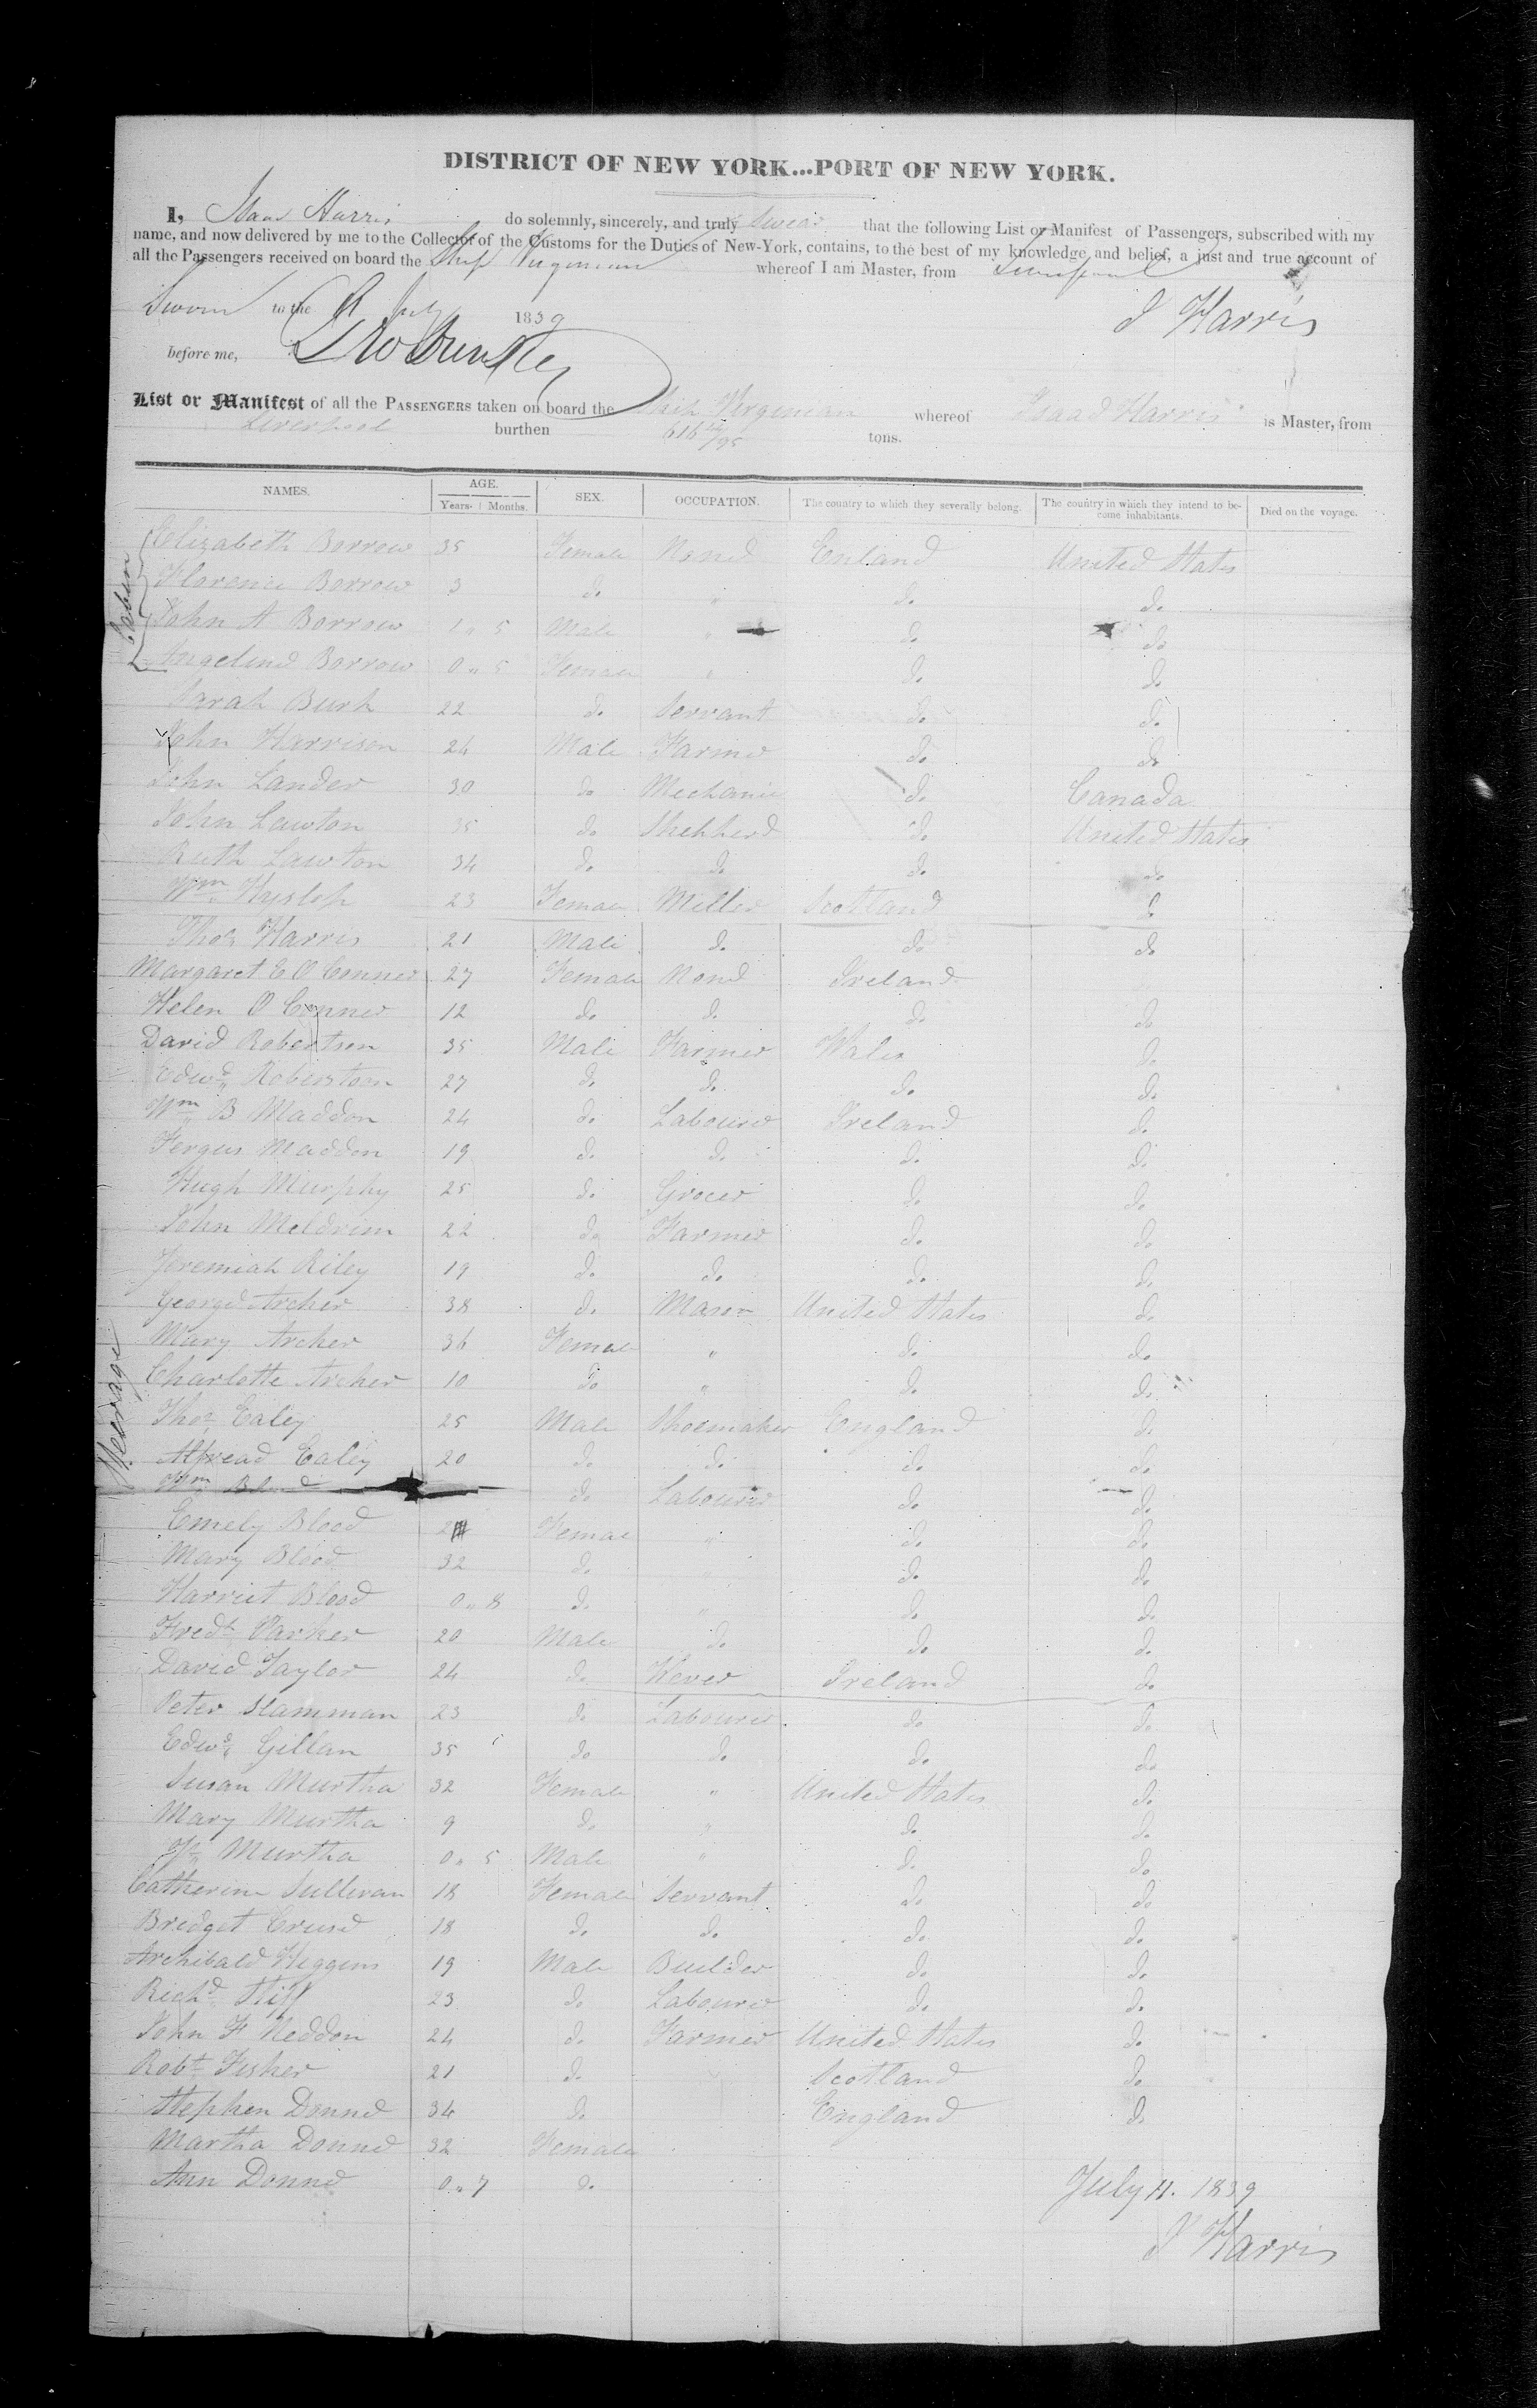 DISTRICT OF NEW YORK...PORT OF NEW YORK.
I, Isaac Harris do solemnly, sincerely, and truly Swear that the following List or Manifest of Passengers, subscribed with my
name, and now delivered by me to the Collector of the Customs for the Duties of New-York, contains, to the best of my knowledge and belief, a just and true account of
all the Passengers received on board the Ship Virginian whereof I am Master, from Liverpool
Sworn to the July 1839 J Harris
before me,
List or Manifest of all the PASSENGERS taken on board the Ship Virginian whereof Isaac Harris is Master, from
Liverpool burthen 616 /95 tons.
NAMES. AGE. SEX. OCCUPATION. The country to which they severally belong. The country in which they intend to become inhabitants. Died on the voyage.
Years. Months.
Cabin
Elizabeth Borrow 35 Female None England United States
Florence Borrow 3 do " do do
John A Borrow 1 " 5 Male " do do
Angeline Borrow 0 " 5 Female " do do
Sarah Burk 22 do Servant do do
John Harrison 24 Male Farmer do do
John Lander 30 do Mechanic do Canada
John Lawton 35 do Shepherd do United States
Ruth Lawton 34 do do do do
Wm Hyslop 23 Female Miller Scotland do
Thos Harris 21 Male do do do
Margaret E O Conner 27 Female None Ireland
Helen O Conner 12 do do do do
David Robertson 35 Male Farmer Wales do
Edwd Roberstom 27 do do do do
Wm B Maddon 24 do Labourer Ireland do
Fergus Maddon 19 do do do do
Hugh Murphy 25 do Grocer do do
John Meldrim 22 do Farmer do do
Jeremiah Riley 19 do do do do
George Archer 38 do Mason United States do
Steerage
Mary Archer 36 Female " do do
Charlotte Archer 10 do " do do
Thos Ealey 25 Male Shoemaker England do
Alfread Ealey 20 do do do do
Wm do Labourer do do
Emely Blood Female " do do
Mary Blood 32 do " do do
Harriet Blood 0 " 8 do " do do
Fredk Parker 20 Male do do do
David Taylor 24 do Ireland do
Peter Slamman 23 do Labourer do do
Edwd Gillan 35 do do do do
Susan Murtha 32 Female " United States do
Mary Murtha 9 do " do do
Murtha 0 " 5 Male " do do
Catherine Sullivan 18 Female Servant do do
Bridget Cruse 18 do do do do
Archibald Higgins 19 Male Builder do do
Richd Stiff 23 do Labourer do do
John F Neddon 24 do Farmer United States do
Robt Fisher 21 do Scotland do
Stephen Donne 34 do England do
Martha Donne 32 Female
Ann Donne 0 " 7 do
July 11. 1839
J Harris